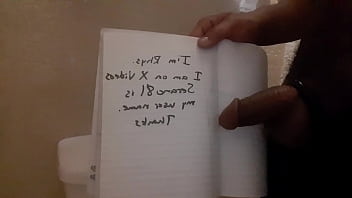 I'm Rhys.
I am on X Videos
Serano81 is
my user name.
Thanks